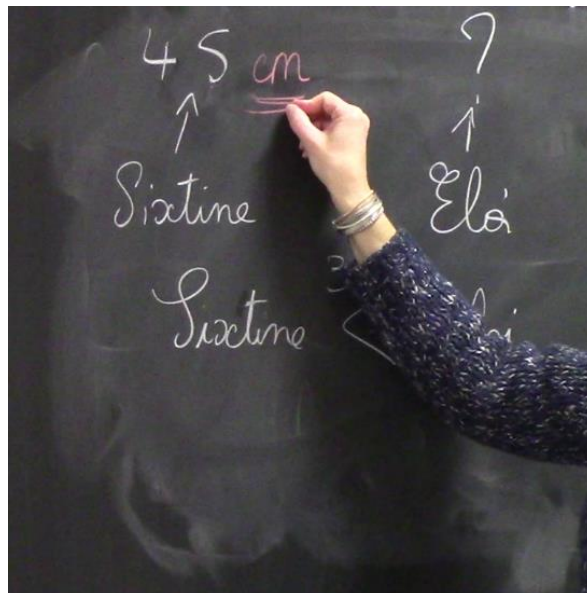 45 cm ?
Sixtine Eloi
3
Sixtine <